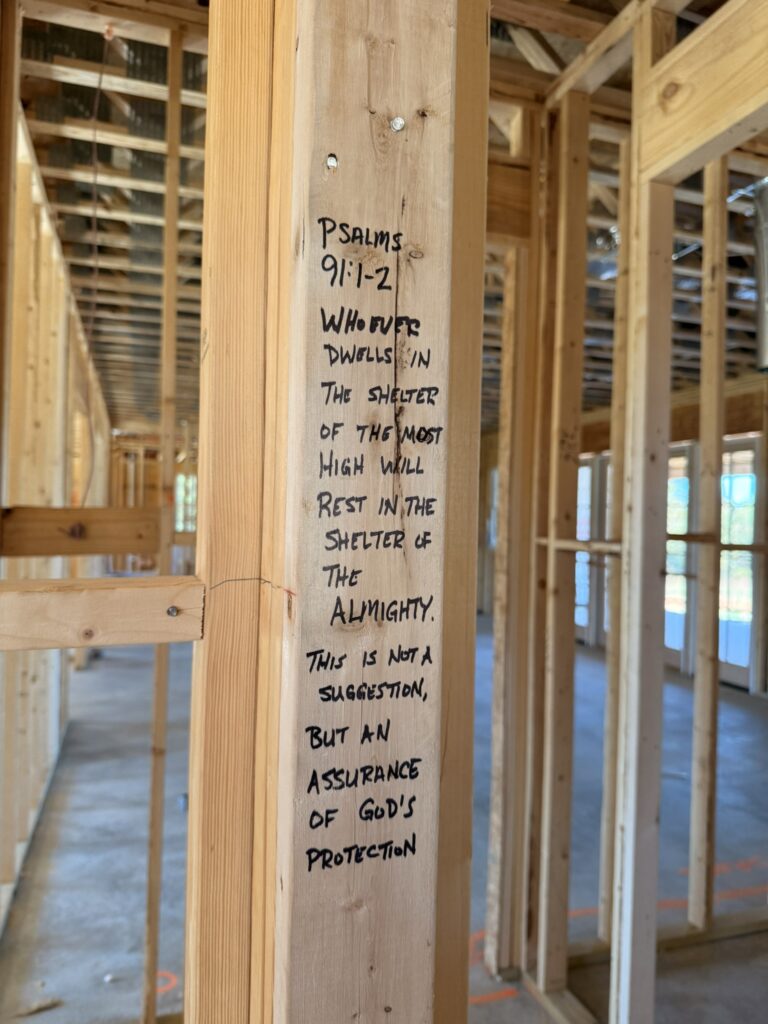 PSALMS
91:1-2
WHOEVER
DWELLS IN
THE SHELTER
OF THE MOST
HIGH WILL
REST IN THE
SHELTER OF
THE
ALMIGHTY.
THIS IS NOT A
SUGGESTION,
BUT AN
ASSURANCE
OF GOD'S
PROTECTION